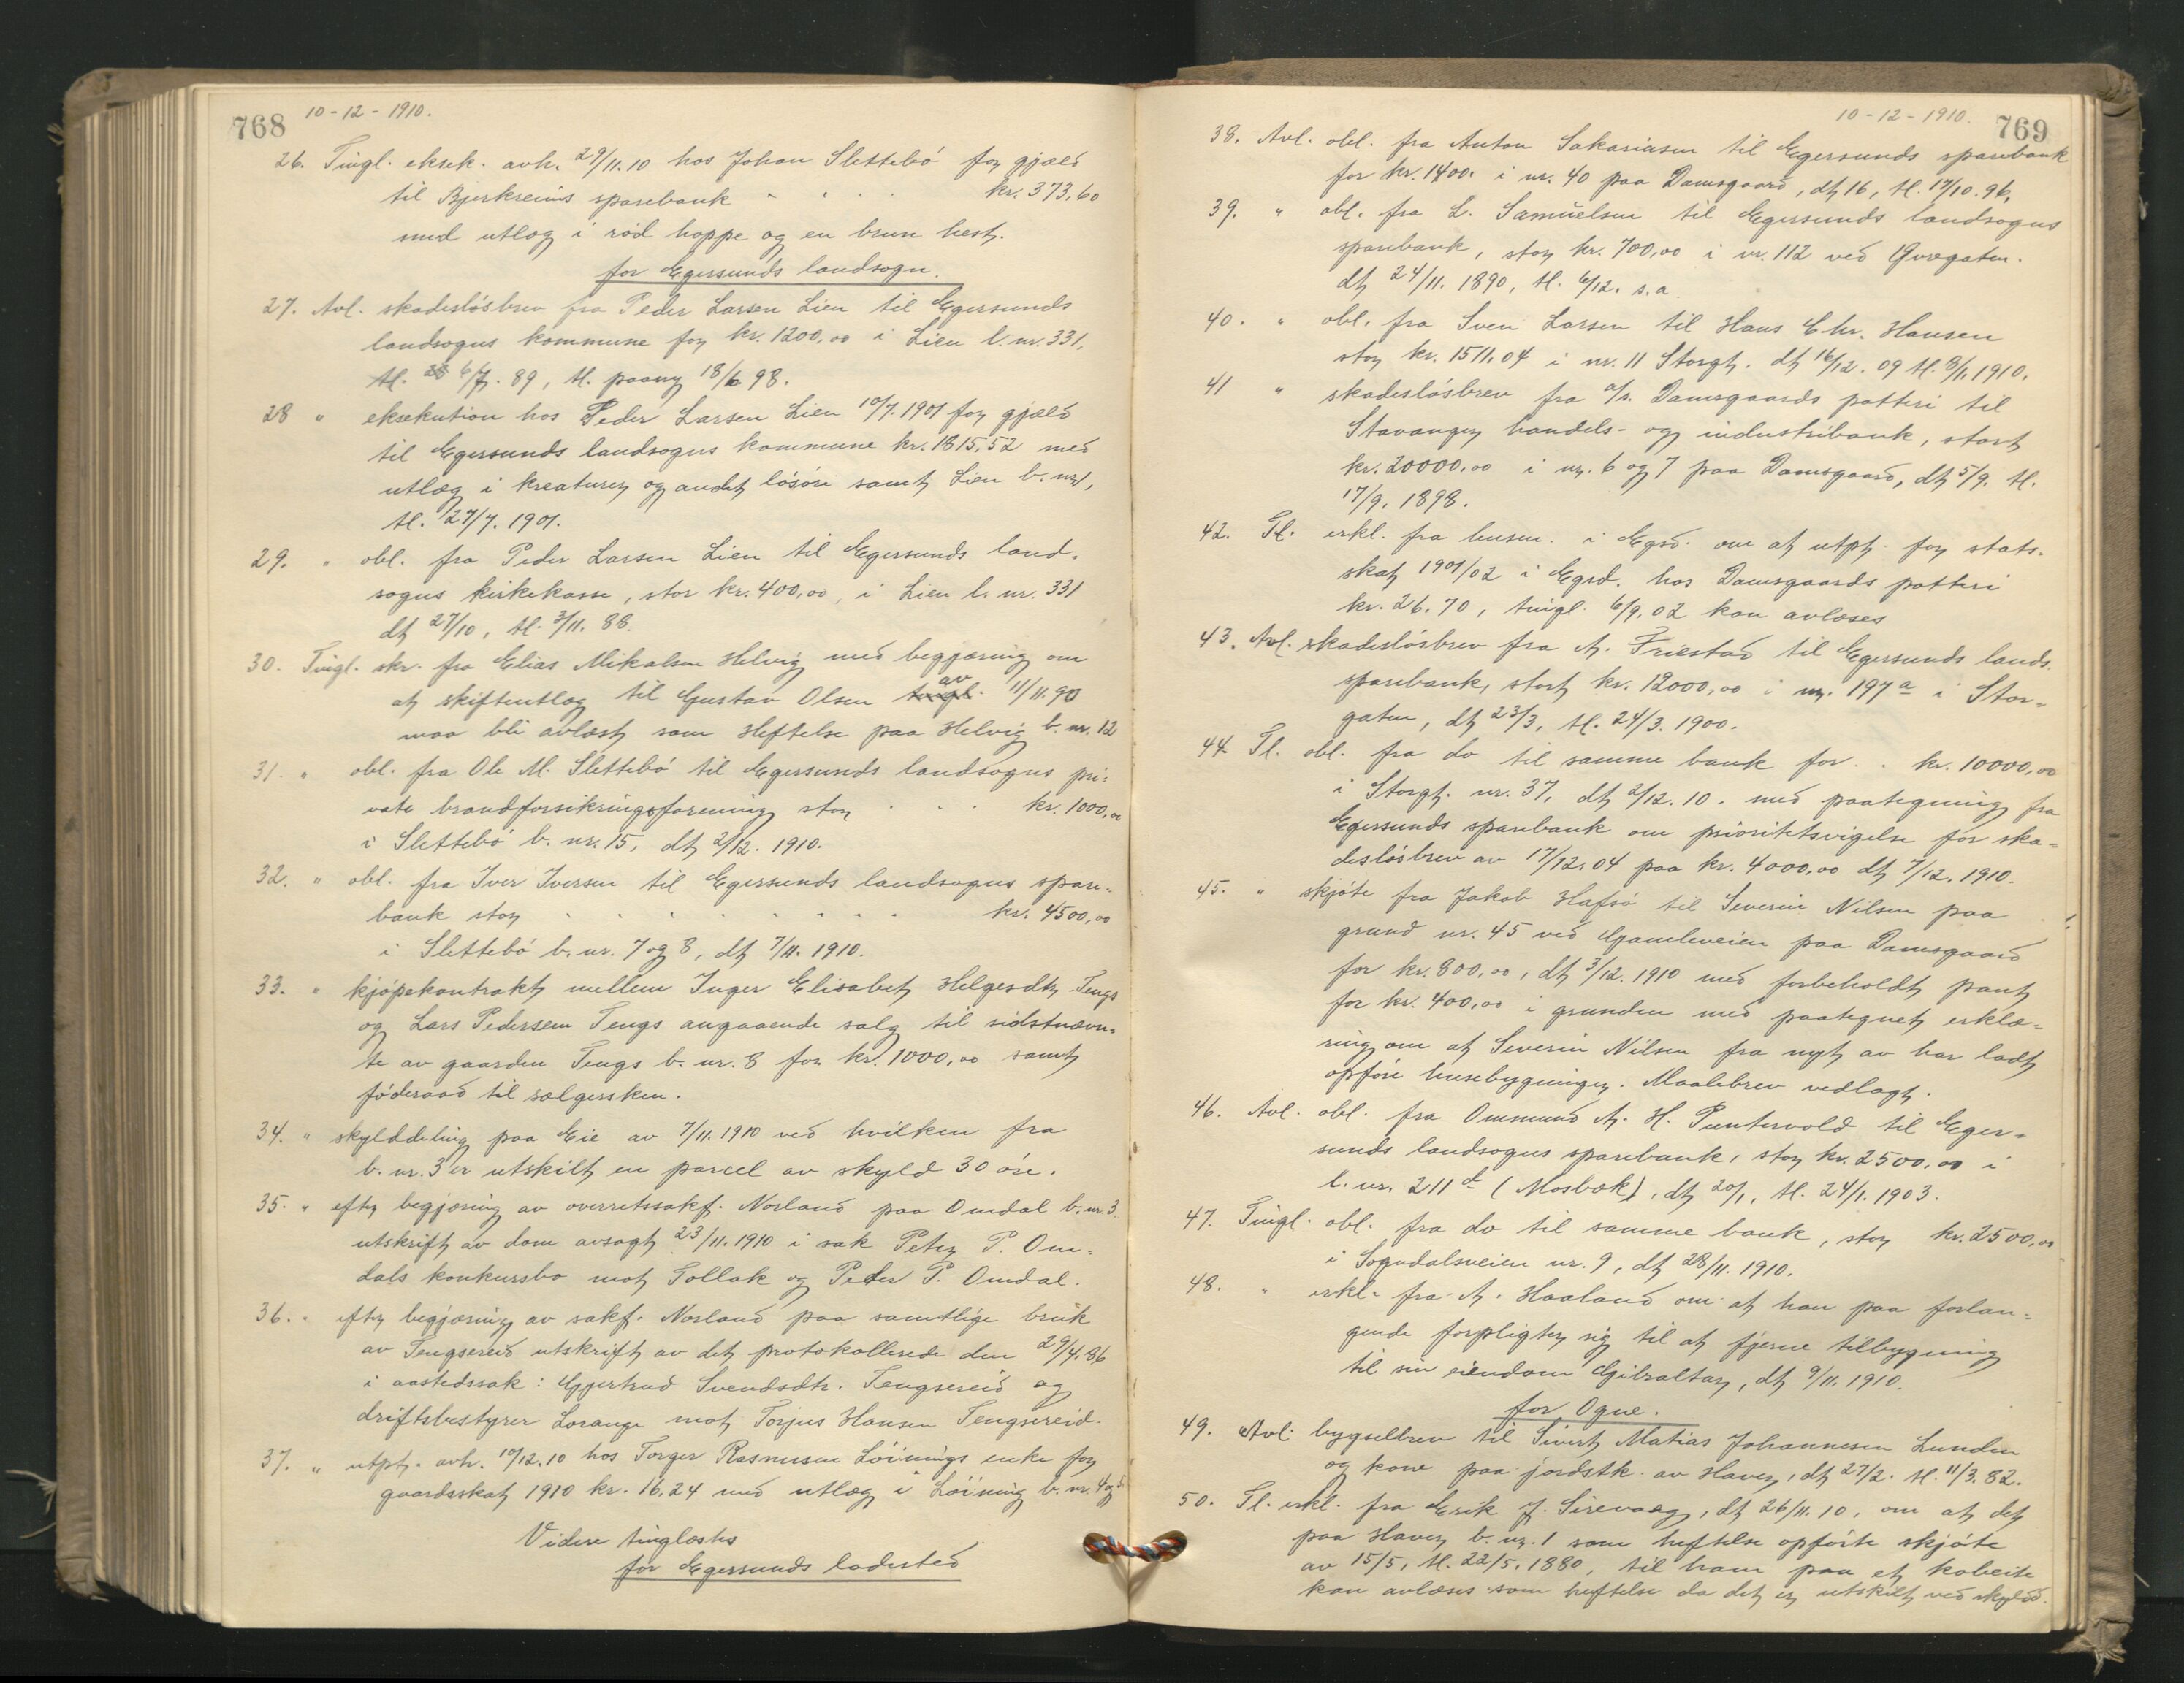 768
10-12-1910.
26. Tingl. eksek. avh. 29/11.10 hos Johan Slettebö for gjæld
til Bjerkreims sparebank " . . . kr. 373,60
med utlæg i rød hoppe og en brun hest.
for Egersunds landsogn.
27. Avl. skadeslösbrev fra Peder Larsen Lien til Egersunds
landsogns kommune for kr. 1200,00 i Lien l. nr. 331,
tl. 6/7. 89, tl. paany 18/6 98.
28 " eksekution hos Peder Larsen Lien 10/7. 1901 for gjæld
til Egersunds landsogns kommune kr. 1815,52 med
utlæg i kreaturer og andet lösöre samt Lien b. nr 1,
tl. 27/7. 1901.
29. " obl. fra Peder Larsen Lien til Egersunds land-
sogns kirkekasse, stor kr. 400,00, i Lien l. nr. 331
dt 27/10, tl. 3/11. 88.
30. Tingl. skr. fra Elias Mikalsen Helvig med begjæring om
at skifteutlæg til Gustav Olsen tingl. av 11/11.90
maa bli avlæst som Heftelse paa Helvig b. nr. 12
31. " obl. fra Ole M. Slettebö til Egersunds landsogns pri-
vate brandforsikringsforening stor . . . kr. 1000,00
i Slettebö b. nr. 15, dt 2/12. 1910.
32. " obl. fra Iver Iversen til Egersunds landsogns spare-
bank stor . . . . . . . . kr. 4500,00
i Slettebö b. nr. 7 og 8, dt 7/11. 1910.
33. " kjöpekontrakt mellem Inger Elisabet Helgesdtr Tengs
og Lars Pedersem Tengs angaaende salg til sidstnævn-
te av gaarden Tengs b. nr. 8 for kr. 1000,00 samt
föderaad til sælgersken.
34. " skylddeling paa Eie av 7/11. 1910 ved hvilken fra
b. nr. 3 er utskilt en parcel av skyld 30 öre.
35. " efter begjæring av overretssakf. Norland paa Omdal b. nr. 3.
utskrift av dom avsagt 23/11. 1910 i sak Peter P. Om-
dals konkursbo mot Tollak og Peder P. Omdal.
36. " efter begjæring av sakf. Norland paa samtlige bruk
av Tengsereid utskrift av det protokollerede den 29/4. 86
i aastedssak: Gjertrud Svendsdtr. Tengsereid og
driftsbestyrer Lorange mot Torjus Hansen Tengsereid.
37. " utpt. avh. 10/12.10 hos Torger Rasmusen Löinings enke for
gaardsskat 1910 kr. 16,24 med utlæg i Löining b. nr. 4 og 5
Videre tinglæstes
for Egersunds ladested
10-12-1910.
769
38. Avl. obl. fra Anton Sakariasen til Egersunds sparebank
for kr. 1400. i nr. 40 paa Damsgaard, dt 16, tl. 17/10. 96,
39. " obl. fra L. Samuelsen til Egersunds landsogns
sparebank, stor kr. 700,00 i nr. 112 ved Øvregaten.
dt 24/11. 1890, tl. 6/12. s.a.
40. " obl. fra Sven Larsen til Hans Chr. Hansen
stor kr. 1511,04 i nr. 11 Storgt. dt 16/12. 09 tl. 8/1. 1910.
41 " skadeslösbrev fra a/s. Damsgaards potteri til
Stavanger handels- og industribank, stort
kr. 20000,00 i nr. 6 og 7 paa Damsgaard, dt 5/9. tl.
17/9. 1898.
42. Tl. erkl. fra lensm. i Egsd. om at utpt. for stats-
skat 1901/02 i Egsd. hos Damsgaards potteri
kr. 26.70, tingl. 6/9.02 kan avlæses
43. Avl. skadeslösbrev fra A. Friestad til Egersunds lands.
sparebank, stort kr. 12000,00 i nr. 197 a i Stor-
gaten, dt 23/3, tl. 24/3. 1900.
44. Tl. obl. fra do til samme bank for . . kr. 10000,00
i Storgt. nr. 37, dt 2/12. 10. med paategning fra
Egersunds sparebank om prioritetsvigelse for ska-
deslösbrev av 17/12. 04 paa kr. 4000,00 dt 7/12. 1910.
45. " skjöte fra Jakob Hafsö til Severin Nilsen paa
grund nr. 45 ved Gamleveien paa Damsgaard
for kr. 800,00, dt 3/12. 1910 med forbeholdt pant
for kr. 400,00 i grunden med paategnet erklæ-
ring om at Severin Nilsen fra nyt av har ladt
opföre husebygninger. Maalebrev vedlagt.
46. Avl. obl. fra Ommund A. H. Puntervold til Eger-
sunds landsogns sparebank, stor kr. 2500,00 i
l. nr. 211 d (Mosbæk), dt 20/1, tl. 24/1. 1903.
47. Tingl. obl. fra do til samme bank, stor kr. 2500,00
i Sogndalsveien nr. 9, dt 28/11. 1910.
48. " erkl. fra A. Haaland om at han paa forlan-
gende forpligter sig til at fjerne tilbygning
til sin eiendom Gibraltar, dt 9/11. 1910.
for Ogne.
49. Avl. bygselbrev til Sivert Matias Johannesen Lunden
og kone paa jordstk. av Haver, dt 27/2. tl. 11/3. 82.
50. Tl. erkl. fra Erik J. Sirevaag, dt 26/11. 10, om at det
paa Haver b. nr. 1 som heftelse opförte skjöte
av 15/5, tl. 22/5. 1880, til ham paa et kobeite
kan avlæses som heftelse da det er utskilt ved skyldd.